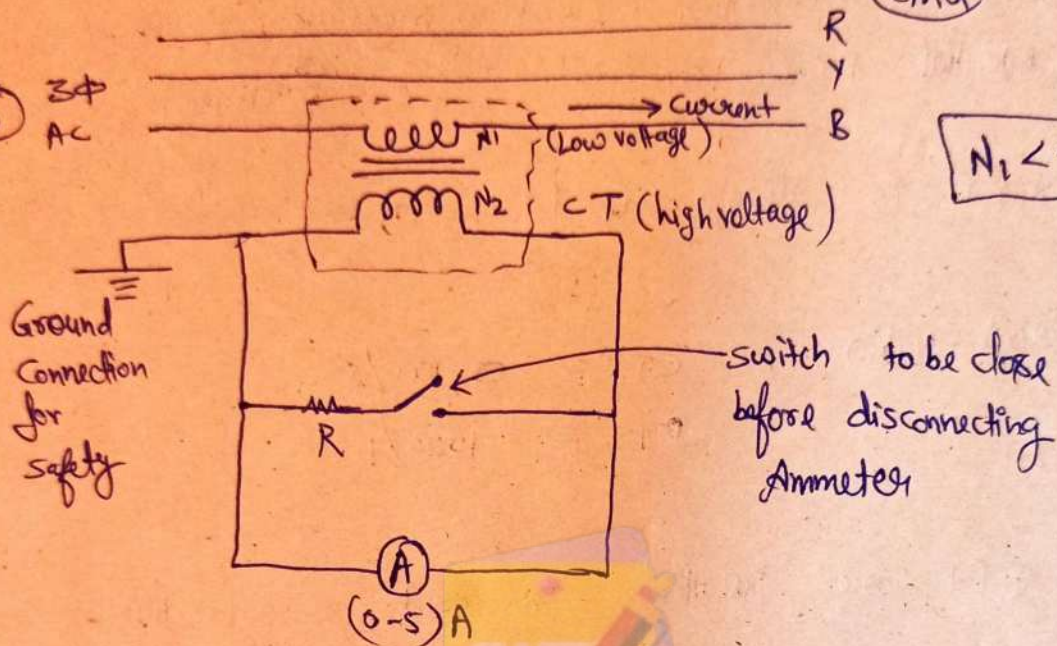 R
3Φ
Y
AC
Current
B
N1
(Low voltage)
N1 <
N2
CT (high voltage)
Ground
Connection
for
safety
switch to be close
before disconnecting
Ammeter
R
A
(0-5) A